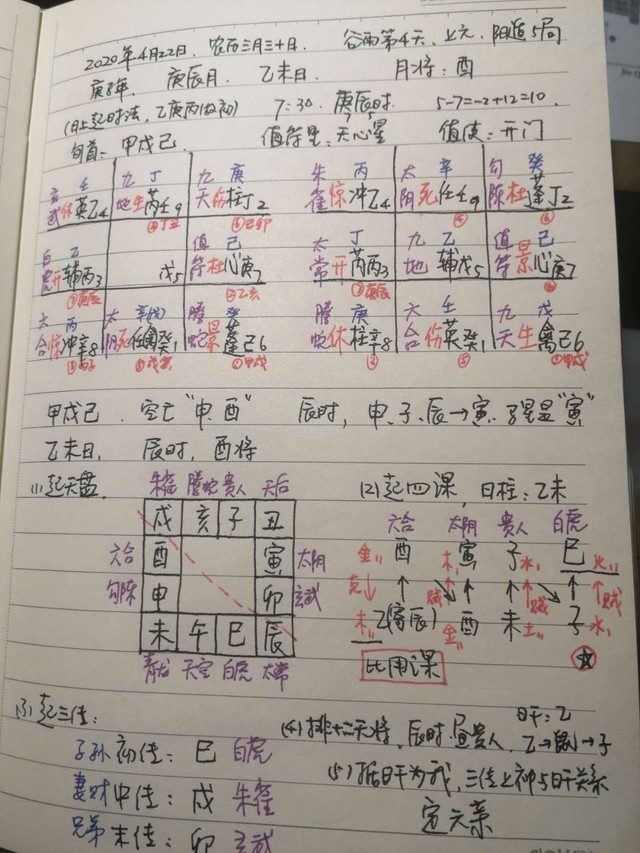 2020年4月22日. 农历三月三十日. 谷雨第4天、上元. 阳遁5局
庚子年. 庚辰月. 乙未日. 月将: 酉
(日上起时法, 乙庚丙做初) 7:30. 庚辰时. 5-7=-2+12=10.
旬首: 甲戌己. 值符星: 天心星 值使: 开门
玄 壬 九 丁 九 庚 朱 丙 太 辛 勾 癸
武休英乙4 地生芮壬9 天伤柱丁2 雀惊冲乙4 阴死任壬9 陈杜蓬丁2
④丁丑 ⑥己卯
白 乙 值 己 太 丁 九 乙 值 己
虎开辅丙3 戊5 符杜心庚7 常开芮丙3 地 辅戊5 符景心庚7
⑦庚辰 ②乙亥 ⑦庚辰
太 丙 太 辛(戊) 螣 癸 螣 庚 六 壬 九 戊
合惊冲辛8 阴死任禽癸1 蛇景蓬己6 蛇休柱辛8 合伤英癸1 天生禽己6
③丙子 ①甲戌 ①甲戌
甲戌己. 空亡"申、酉" 辰时, 申、子、辰→寅. 马星是"寅"
乙未日, 辰时, 酉将
(1)起天盘. 朱雀 螣蛇 贵人 天后 (2)起四课, 日柱: 乙未
戌 亥 子 丑 六合 太阴 贵人 白虎
六合 酉 寅 太阴 金 酉 木 寅 子 水 巳 火
勾陈 申 卯 玄武 克↓ ↑ 贼 ↑ ↑ 贼 ↑ ↑贼
未 午 巳 辰 木 乙(寄辰) 金 酉 未 土 子 水
青龙 天空 白虎 太常 比用课
(3)起三传: (4)排十二天将, 辰时, 昼贵人, 日干: 乙 乙→鼠→子
子孙 初传: 巳 白虎 (5)据日干为我, 三传上神与日干关系
妻财 中传: 戌 朱雀 定六亲
兄弟 末传: 卯 玄武